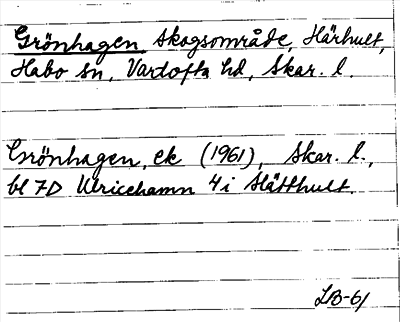 Grönhagen skogsområde, Härhult,
Habo sn, Vartofta hd, Skar. l.
Grönhagen, ek (1961), Skar. l.,
bl 7D Ulricehamn 4i Slätthult.
LB-61